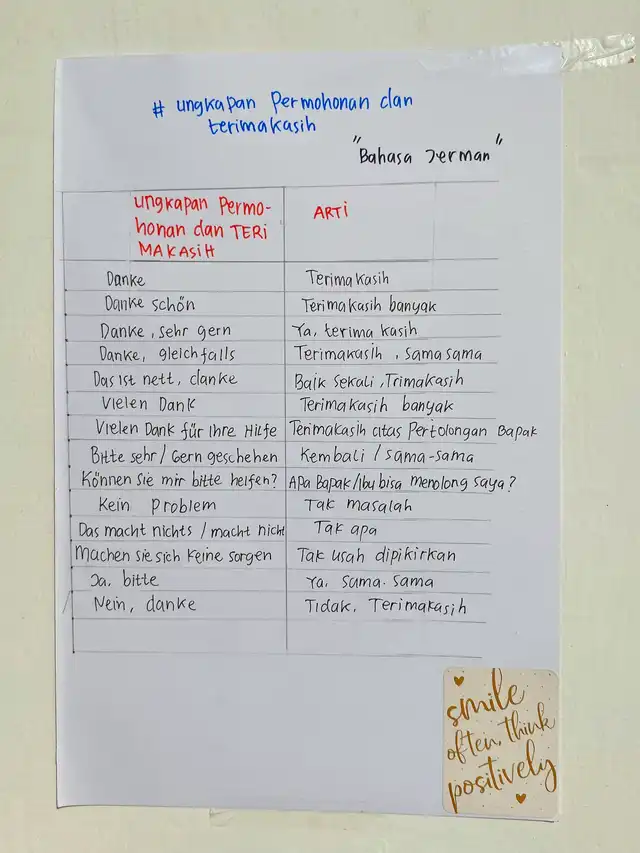 # ungkapan Permohonan dan
terimakasih
"Bahasa Jerman"
ungkapan Permo-
honan dan TERI
MAKASIH
ARTI
Danke
Terima kasih
Danke schön
Terimakasih banyak
Danke, sehr gern
Ya, terima kasih
Danke, gleichfalls
Terimakasih, samasama
Das ist nett, danke
Baik sekali, Trimakasih
Vielen Dank
Terimakasih banyak
Vielen Dank für Ihre Hilfe
Terimakasih atas Pertolongan Bapak
Bitte sehr / Gern geschehen
Kembali / sama-sama
Können Sie mir bitte helfen?
Apa Bapak/Ibu bisa menolong saya?
Kein Problem
Tak masalah
Das macht nichts / macht nicht
Tak apa
Machen sie sich keine sorgen
Tak usah dipikirkan
Ja, bitte
Ya, sama-sama
Nein, danke
Tidak, Terimakasih
smile
often, think
positively